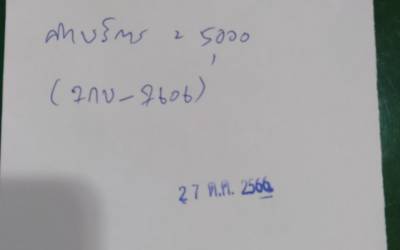 ค่าบริการ = 5000
(วกข-2606)
27 ต.ค. 2566